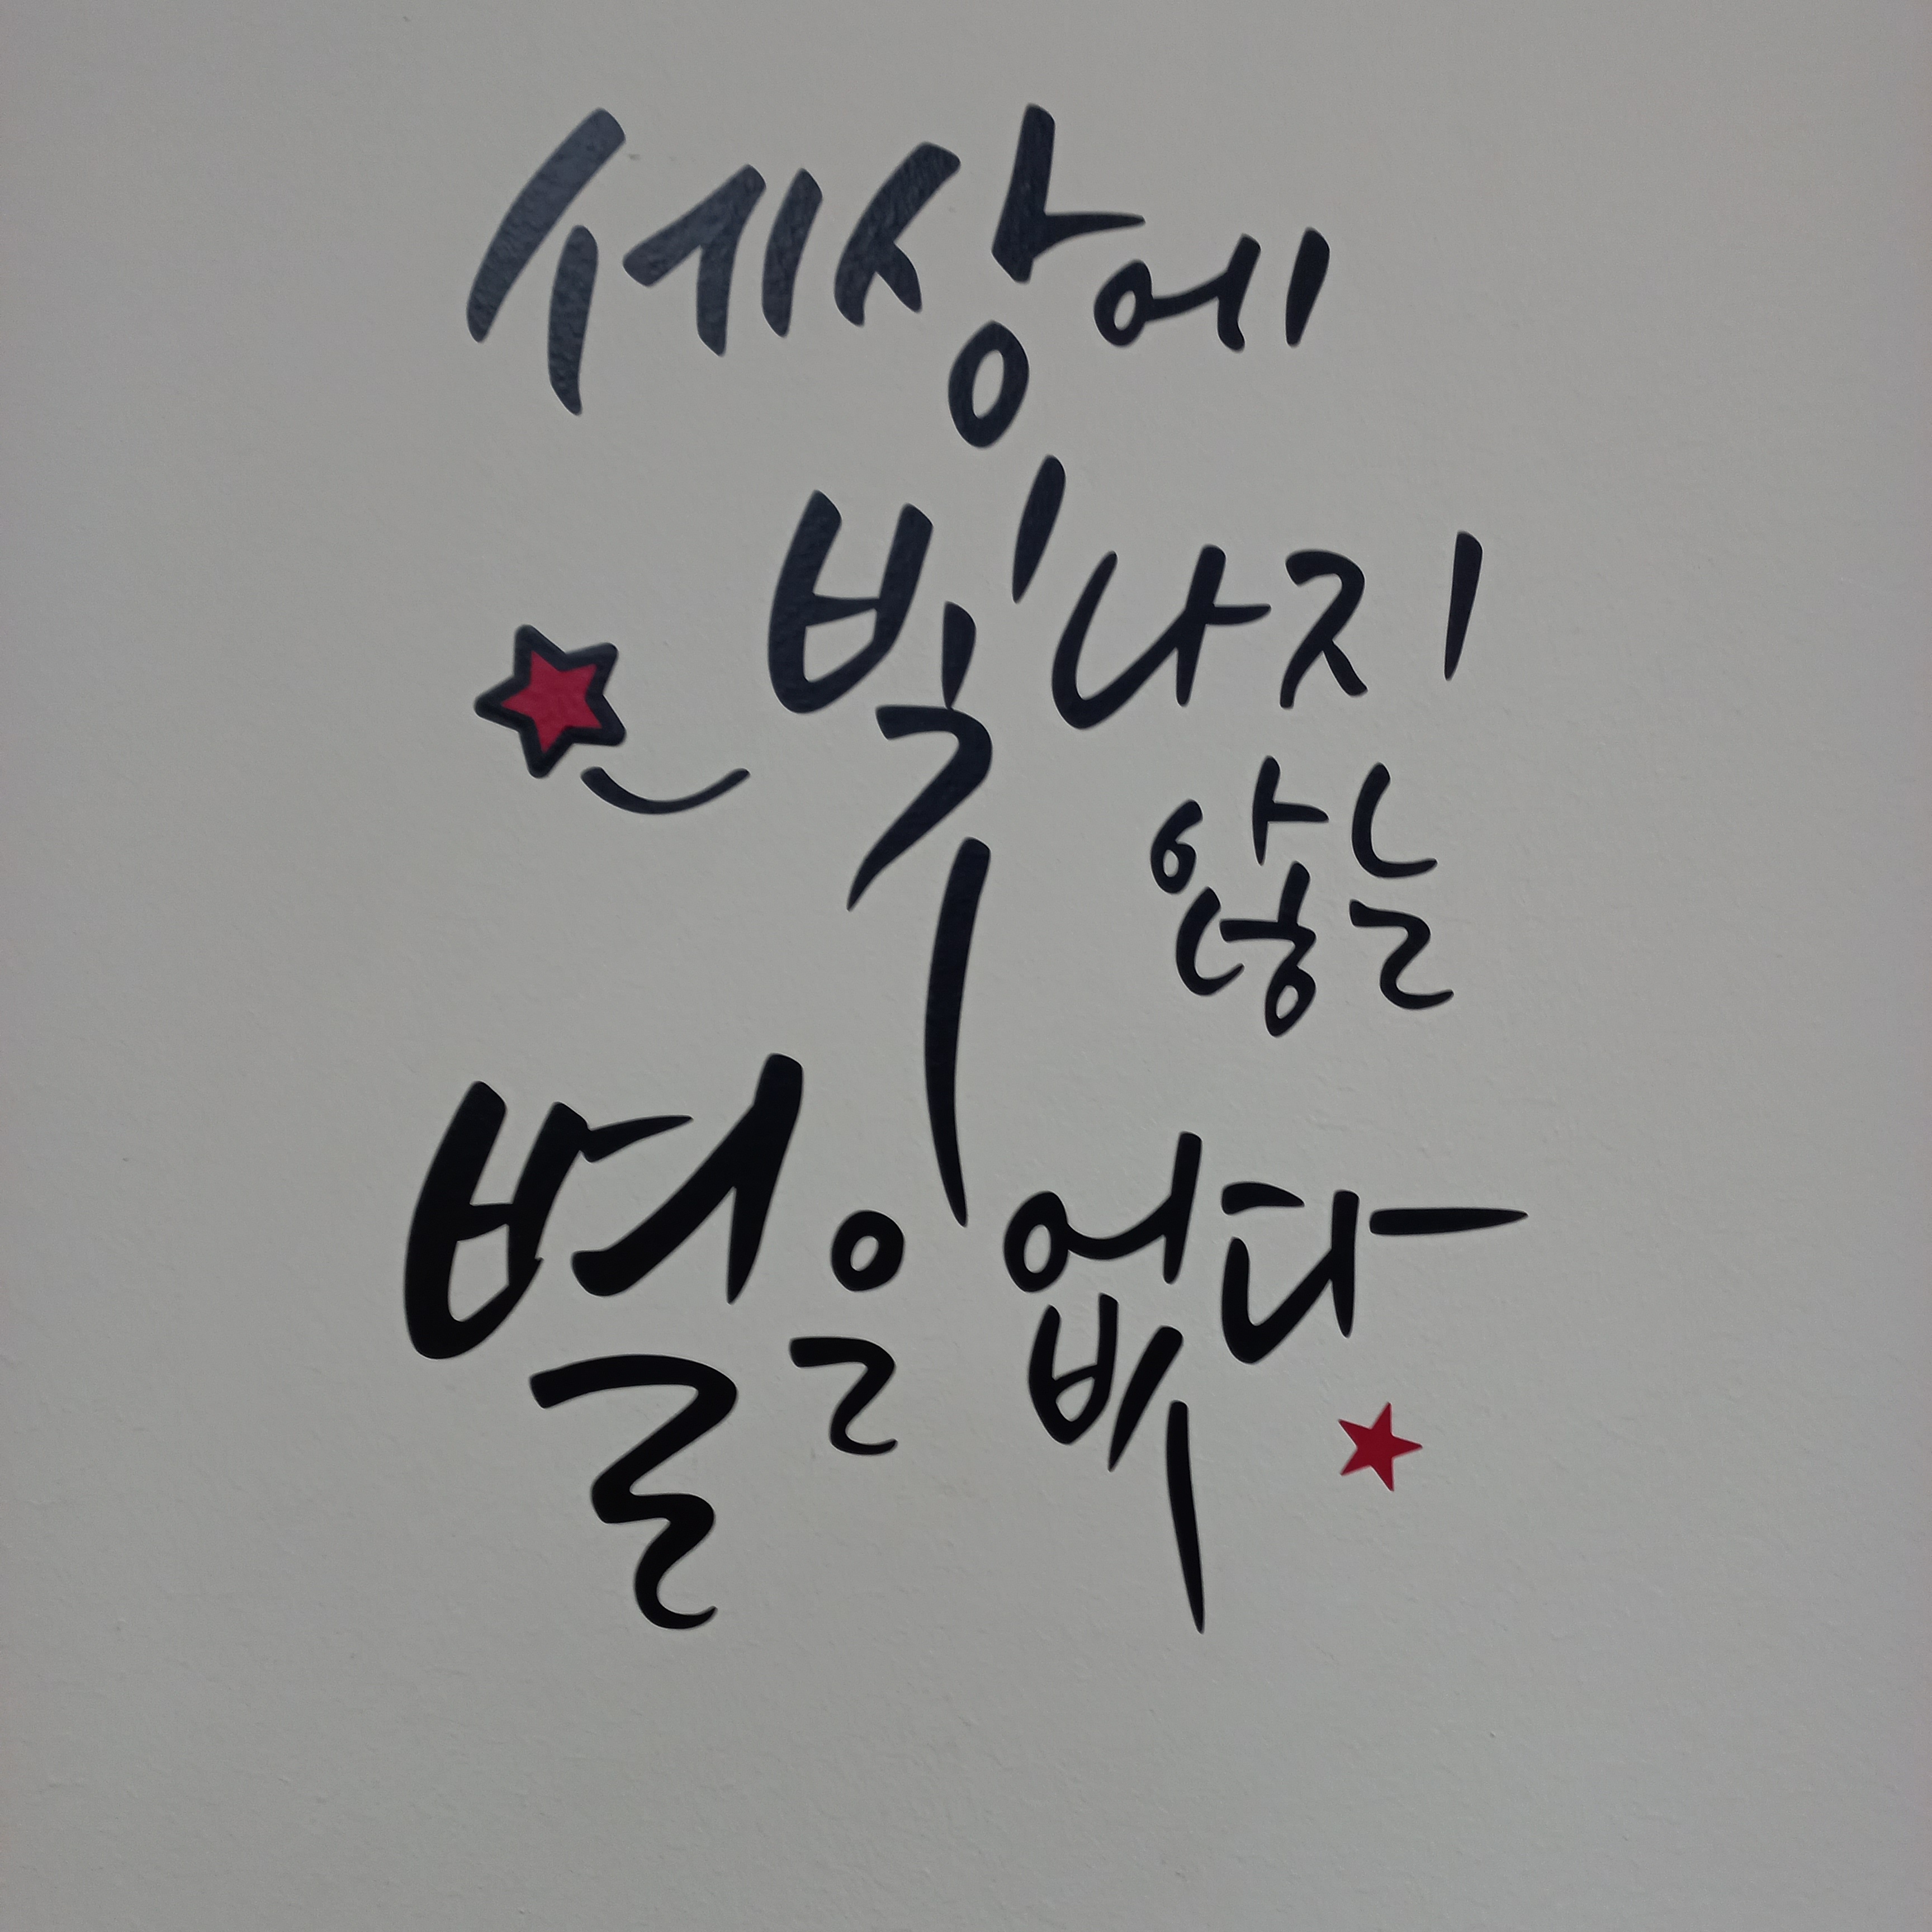 세상에
빛나지
않는
별은 없다